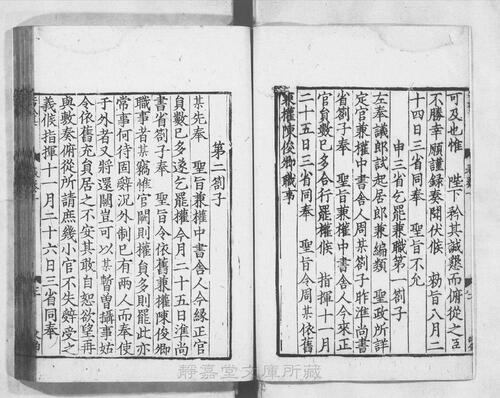 可及也惟　陛下矜其誠懇而俯從之臣
不勝幸願謹録奏聞伏候　勑旨八月二
十四日三省同奉　聖旨不允
申三省乞罷兼職第一劄子
左奉議郎試起居郎兼編類　聖政所詳
定官兼權中書舍人周某劄子昨准尚書
省劄子奉　聖旨兼權中書舍人今來正
官員數已多合行罷權候　指揮十一月
二十五日三省同奉　聖旨令周某依舊
兼權陳俊卿職事
第二劄子
某先奉　聖旨兼權中書舍人今縁正官
員數已多遂乞罷權今月二十五日准尚
書省劄子奉　聖旨令依舊兼權陳俊卿
職事者某竊惟官闕則權員多則罷此亦
常事何待固辭況外制已有兩人而奉使
于外者又將還闕豈可以某暫曾攝事姑
令依舊充員居之不安其敢自恕欲望再
與敷奏俯從所請庶幾小官不失辭受之
義候指揮十一月二十六日三省同奉
靜嘉堂文庫所藏